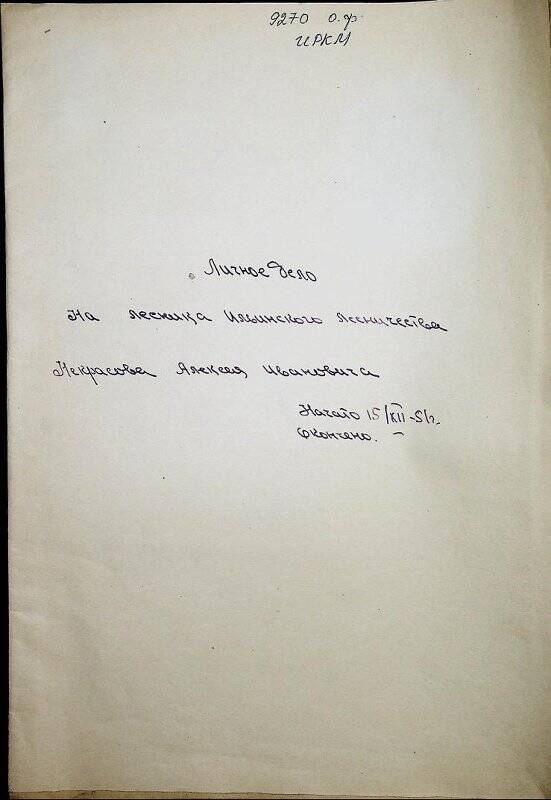 9270 о.ф.
ИРКМ
Личное дело
На лесника Ильинского лесничества
Некрасова Алексея Ивановича
Начато 15/XII-51г.
Окончено. –